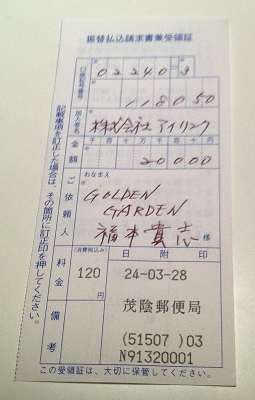 振替払込請求書兼受領証
口座記号番号
02240 9
118050
加入者名
株式会社アイリンク
金額
千百十万千百十円
20000
ご依頼人
おなまえ
GOLDEN
GARDEN
福本貴志 様
料金
(消費税込み)
120 円
日附印
24-03-28
茂陰郵便局
(51507 )03
N91320001
備考
記載事項を訂正した場合は、その箇所に訂正印を押してください。
この受領証は、大切に保管してください。